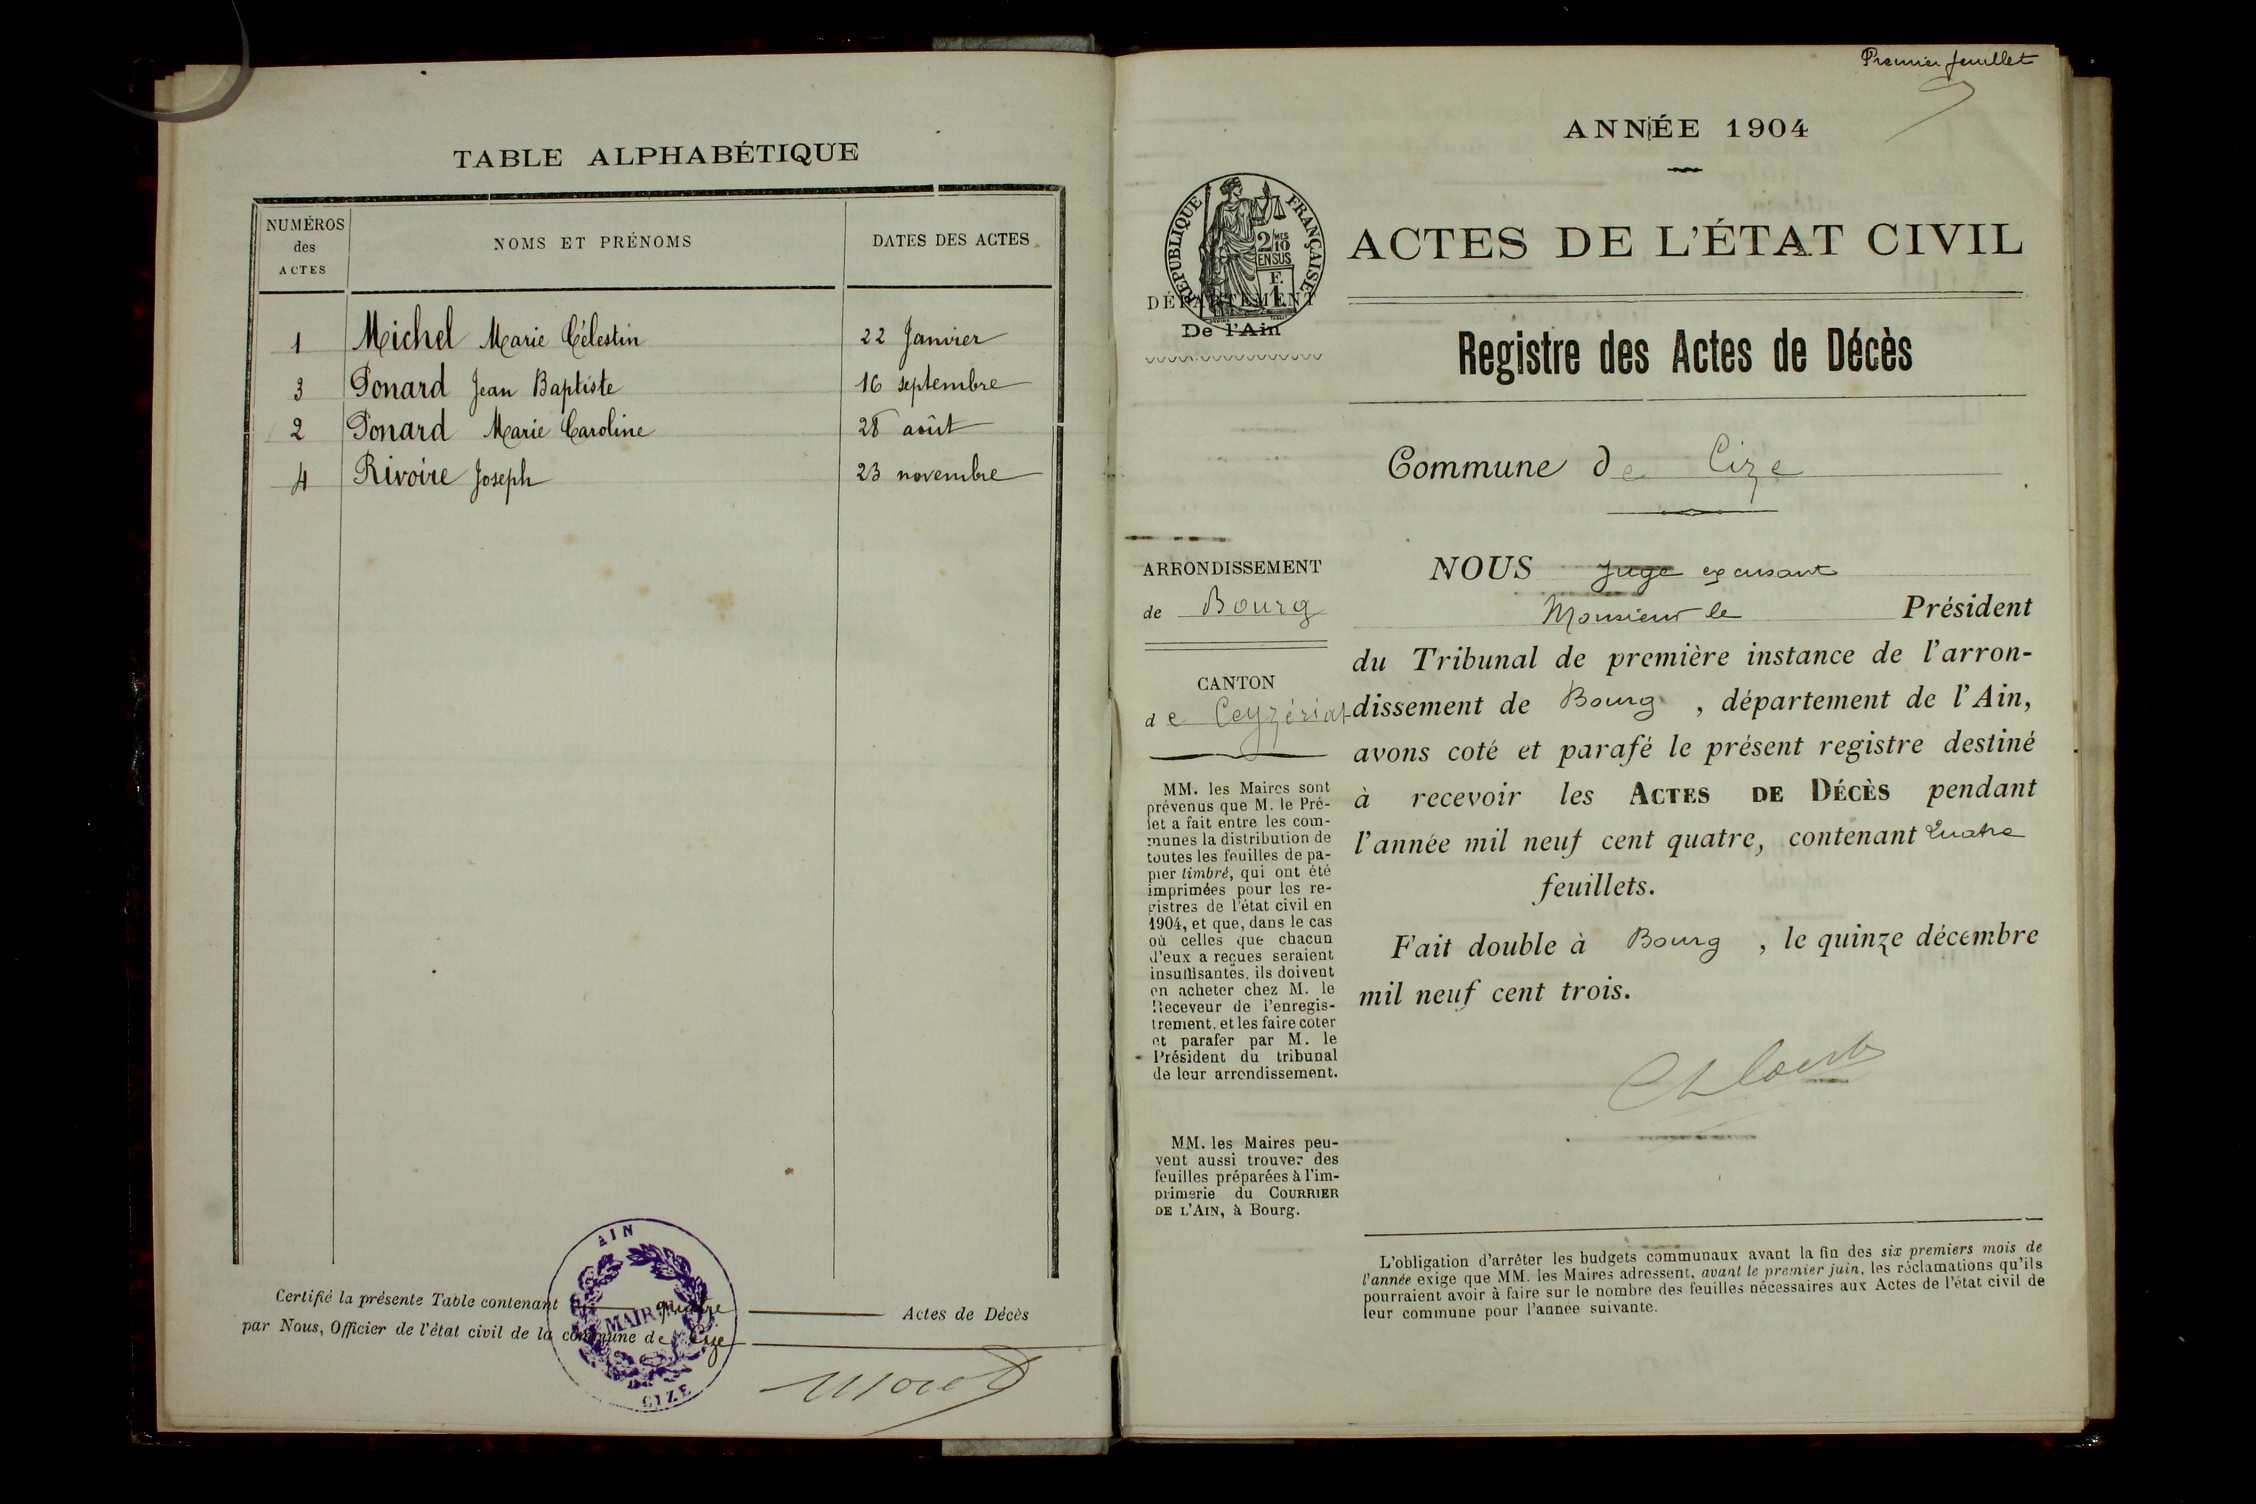 TABLE ALPHABÉTIQUE
NUMÉROS des ACTES
NOMS ET PRÉNOMS
DATES DES ACTES
1 Michel Marie Célestin 22 Janvier
3 Ponard Jean Baptiste 16 septembre
2 Ponard Marie Caroline 28 août
4 Rivoire Joseph 23 novembre
Certifié la présente Table contenant quatre Actes de Décès
par Nous, Officier de l'état civil de la commune de Cize
AIN
MAIRIE
DE
CIZE
Premier feuillet
ANNÉE 1904
RÉPUBLIQUE FRANÇAISE
2/10 EN SUS
F. 1
DÉPARTEMENT
De l'Ain
ACTES DE L'ÉTAT CIVIL
Registre des Actes de Décès
Commune de Cize
ARRONDISSEMENT
de Bourg
CANTON
de Ceyzériat
MM. les Maires sont
prévenus que M. le Pré-
fet a fait entre les com-
munes la distribution de
toutes les feuilles de pa-
pier timbré, qui ont été
imprimées pour les re-
gistres de l'état civil en
1904, et que, dans le cas
où celles que chacun
d'eux a reçues seraient
insuffisantes, ils doivent
en acheter chez M. le
Receveur de l'enregis-
trement, et les faire coter
et parafer par M. le
Président du tribunal
de leur arrondissement.
MM. les Maires peu-
vent aussi trouver des
feuilles préparées à l'im-
primerie du COURRIER
DE L'AIN, à Bourg.
NOUS Juge excusant
Monsieur le Président
du Tribunal de première instance de l'arron-
dissement de Bourg, département de l'Ain,
avons coté et parafé le présent registre destiné
à recevoir les ACTES DE DÉCÈS pendant
l'année mil neuf cent quatre, contenant quatre
feuillets.
Fait double à Bourg, le quinze décembre
mil neuf cent trois.
L'obligation d'arrêter les budgets communaux avant la fin des six premiers mois de
l'année exige que MM. les Maires adressent, avant le premier juin, les réclamations qu'ils
pourraient avoir à faire sur le nombre des feuilles nécessaires aux Actes de l'état civil de
leur commune pour l'année suivante.